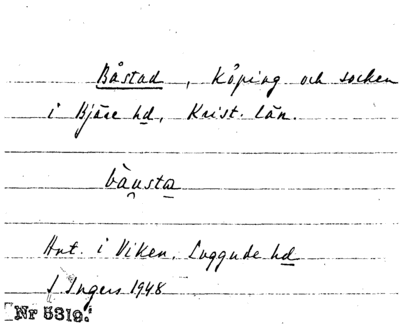 Båstad, Köping och socken
i Bjäre hd, Krist. län.
bàusta
Hnt. i Viken, Luggude hd
S Ingers 1948
Nr 5319.